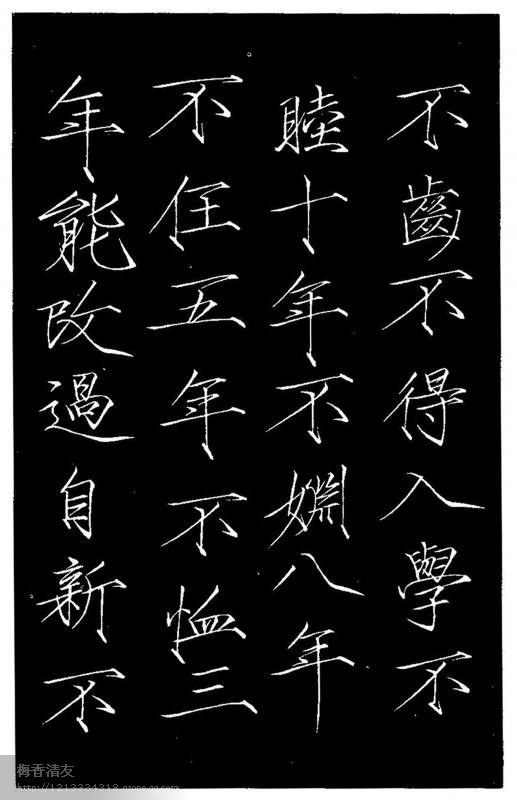 不齒不得入學不
睦十年不婣八年
不任五年不恤三
年能改過自新不
梅香清友
http://1213334318.qzone.qq.com